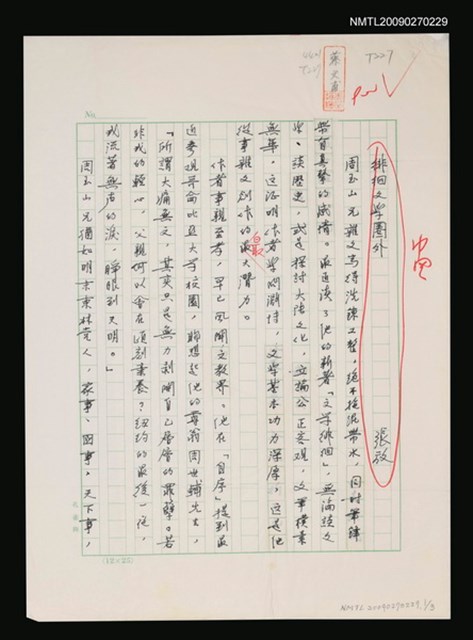 NMTL20090270229
T227
No.
徘徊文學圈外
張放
周玉山兄雜文寫得洗鍊工整，絕不拖泥帶水，同時筆鋒
帶有真摯的感情。最近讀了他的新著「文學徘徊」，無論談文
學、談歷史，或是探討大陸文化，立論公正客觀，文筆樸素
無華，這證明作者學問淵博，文學基本功力深厚，這是他
從事雜文創作的最大潛力。
作者事親至孝，早已風聞文教界。他在「自序」提到最
近參觀哥倫比亞大學校園，聯想起他的尊翁周世輔先生，
「所謂大痛無文，其實只是無力剖開自己層層的罪孽。若
非我的輕心，父親何以會在頃刻棄養？紐約的最後一夜，
我流著無聲的淚，睜眼到天明。」
周玉山兄猶如明末東林黨人，家事、國事，天下事，
(12×25)
NMTL20090270229 1/3